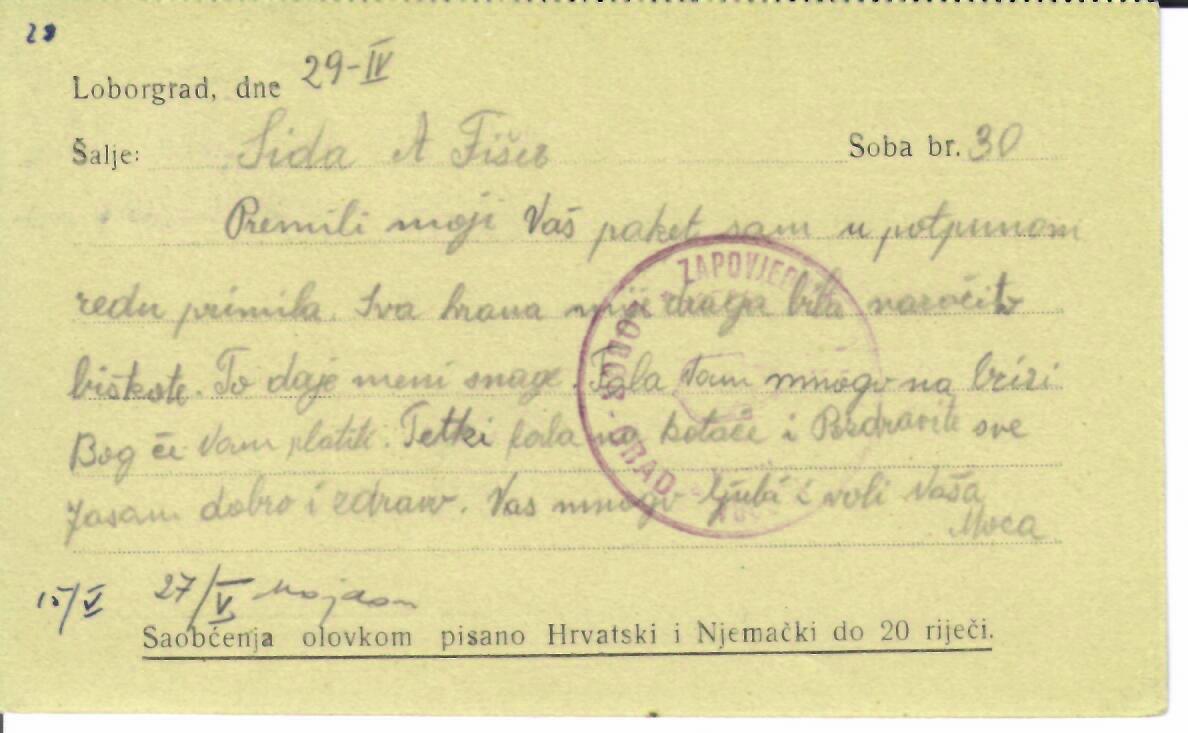 28
Loborgrad, dne 29-IV
Šalje: Sida A Fišer Soba br. 30
Premili moji Vaš paket sam u potpunom
redu primila. Sva hrana mi je draga bila naročito
biskote. To daje meni snage. Fala Vam mnogo na brizi
Bog će Vam platit. Tetki fala na kolače i Pozdravite sve
Jasam dobro i zdravo. Vas mnogo ljubi i voli Vaša
Moca
ZAPOVJED
GRAD
15/V 27/V
Saobćenja olovkom pisano Hrvatski i Njemački do 20 riječi.